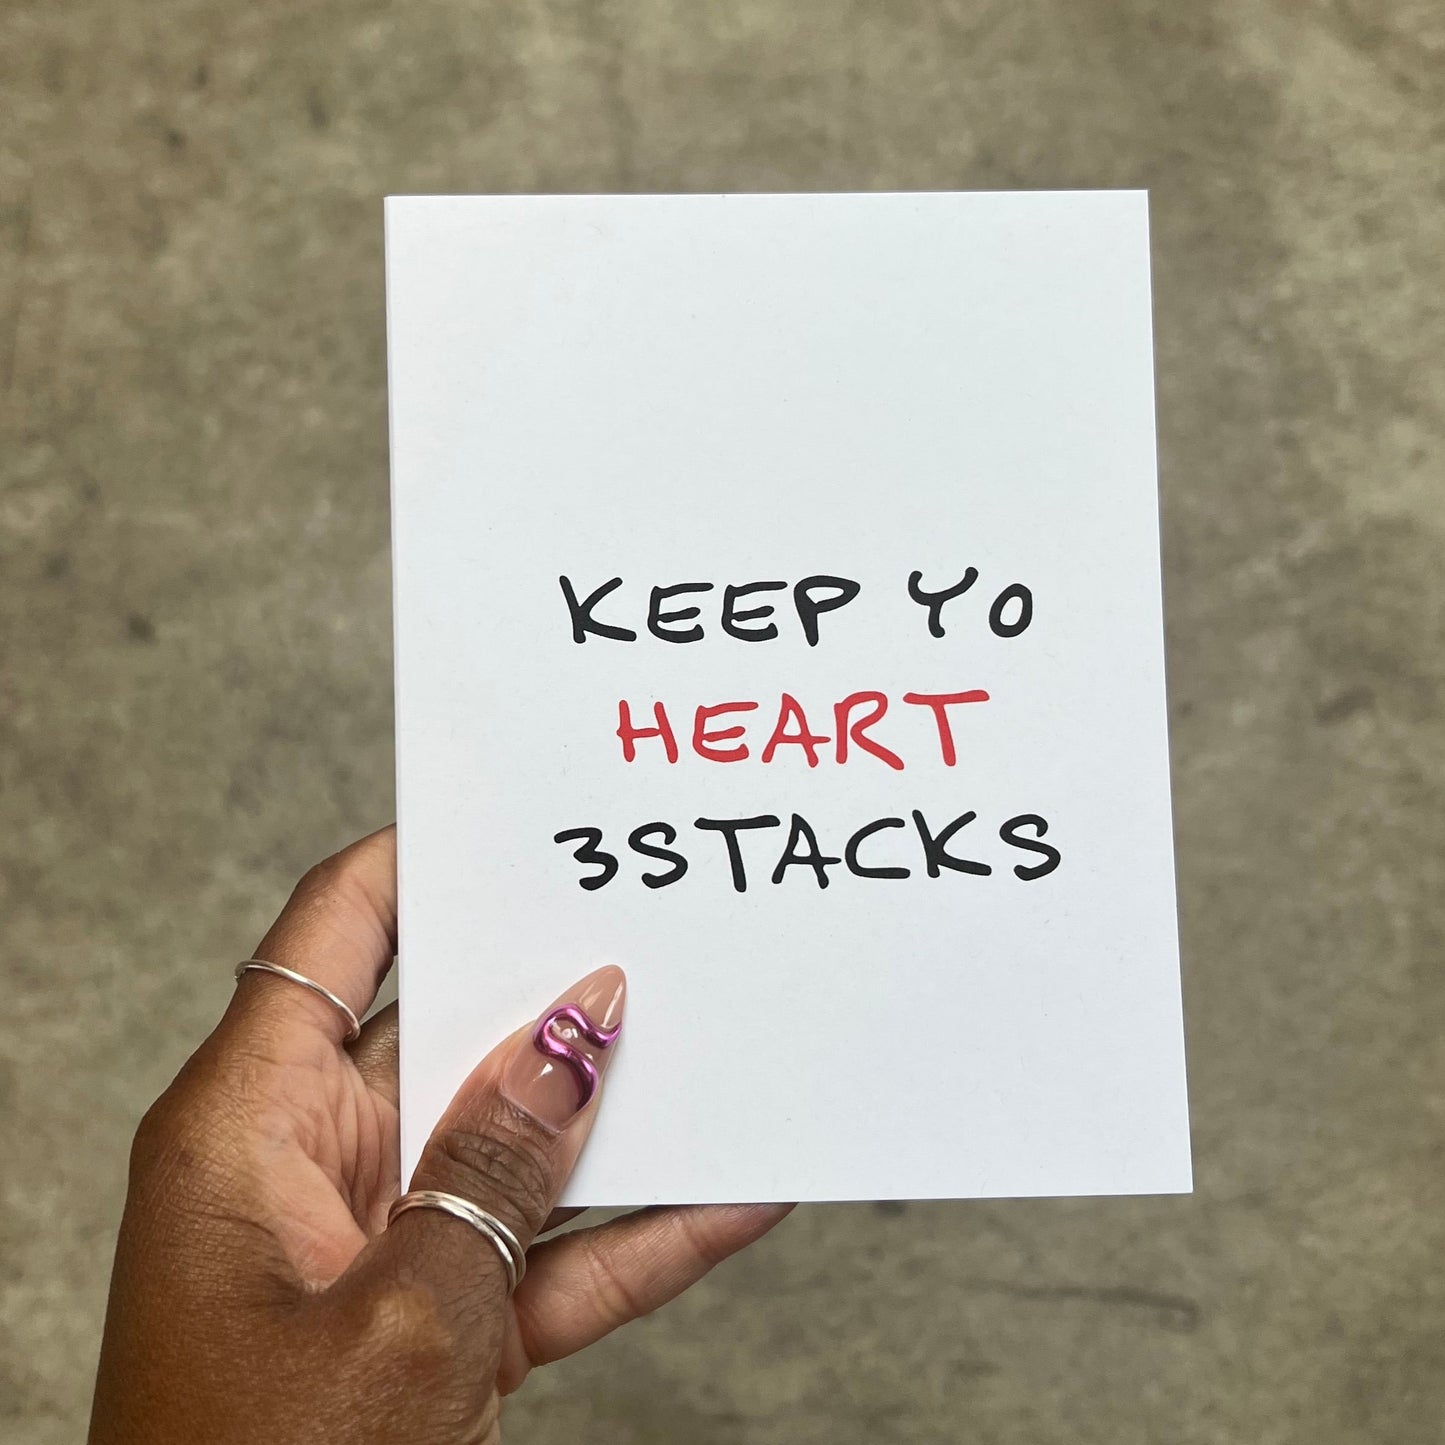 KEEP YO
HEART
3STACKS